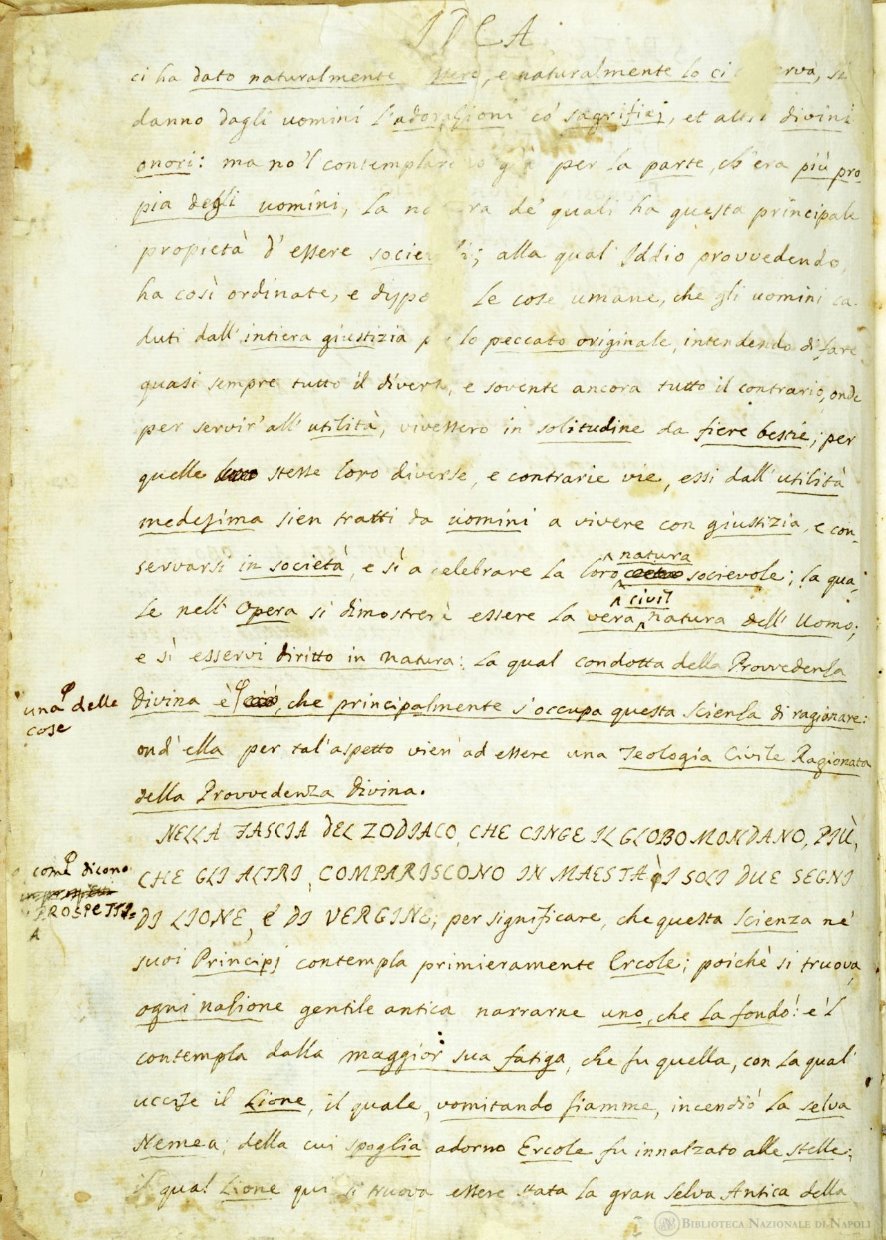 IDEA
ci ha dato naturalmente essere, e naturalmente lo ci conserva, si
danno dagli uomini l'adorazioni co' sagrifizj, et altri divini
onori: ma no 'l contemplaro già per la parte, ch'era più pro
pia degli uomini, la natura de' quali ha questa principale
propietà d'essere socievoli; alla qual Iddio provvedendo,
ha così ordinate, e disposte le cose umane, che gli uomini ca-
duti dall'intiera giustizia per lo peccato originale, intendendo di fare
quasi sempre tutto il diverso, e sovente ancora tutto il contrario, onde
per servir' all'utilità, vivessero in solitudine da fiere bestie; per
quelle stesse loro diverse, e contrarie vie, essi dall'utilità
medesima sien tratti da uomini a vivere con giustizia, e con-
servarsi in società, e sì a celebrare la loro natura socievole; la qua-
le nell' Opera si dimostrerà essere la vera civil natura dell' Uomo;
e sì esservi diritto in natura: la qual condotta della Provvedenza
una delle
cose
Divina è, che principalmente s'occupa questa Scienza di ragionare:
ond' ella per tal' aspetto vien' ad essere una Teologia Civile Ragionata
della Provvedenza Divina.
NELLA FASCIA DEL ZODIACO, CHE CINGE IL GLOBO MONDANO, PIÙ,
come dicono
PROSPETTI-
A
CHE GLI ALTRI, COMPARISCONO IN MAESTÀ I SOLI DUE SEGNI
DI LIONE, E DI VERGINE; per significare, che questa Scienza ne'
suoi Principj contempla primieramente Ercole; poichè si truova,
ogni nazione gentile antica narrarne uno, che la fondò: e 'l
contempla dalla maggior sua fatiga, che fu quella, con la qual'
uccise il Lione, il quale, vomitando fiamme, incendiò la selva
Nemea; della cui spoglia adorno Ercole fu innalzato alle stelle:
il qual Lione qui si truova essere stata la gran Selva Antica della
BIBLIOTECA NAZIONALE DI NAPOLI